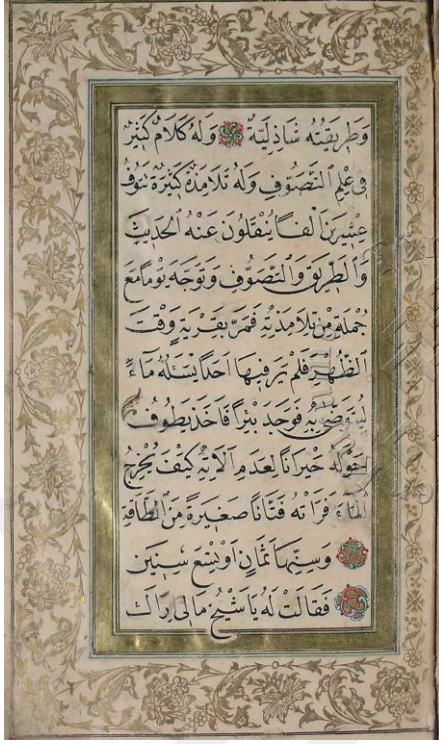 وَطَرِيقَتُهُ شَاذِلِيَّةٌ وَلَهُ كَلَامٌ كَثِيرٌ
فِى عِلْمِ التَّصَوُّفِ وَلَهُ تَلَامِذَةٌ كَثِيرَةٌ تَنُوفُ
عِشْرِينَ اَلْفًا يَنْقُلُونَ عَنْهُ الْحَدِيثَ
وَالطَّرِيقَ وَالتَّصَوُّفَ وَتَوَجَّهَ يَوْمًا مَعَ
جُمْلَةٍ مِنْ تَلَامِذَتِهِ فَمَرَّ بِقَرْيَةٍ وَقْتَ
الظُّهْرِ فَلَمْ يَرَ فِيهَا اَحَدًا يَسْئَلُهُ مَاءً
لِيَتَوَضَّئَ بِهِ فَوَجَدَ بِئْرًا فَاَخَذَ يَطُوفُ
حَوْلَهُ حَيْرَانًا لِعَدَمِ الْاٰنِيَةِ كَيْفَ يُخْرِجُ
الْمَاءَ فَرَاَتْهُ فَتَاتًا صَغِيرَةً مِنَ الطَّاقَةِ
وَسِنُّهَا ثَمَانٍ اَوْ تِسْعُ سِنِينَ
فَقَالَتْ لَهُ يَا شَيْخُ مَالِى اَرَاكَ